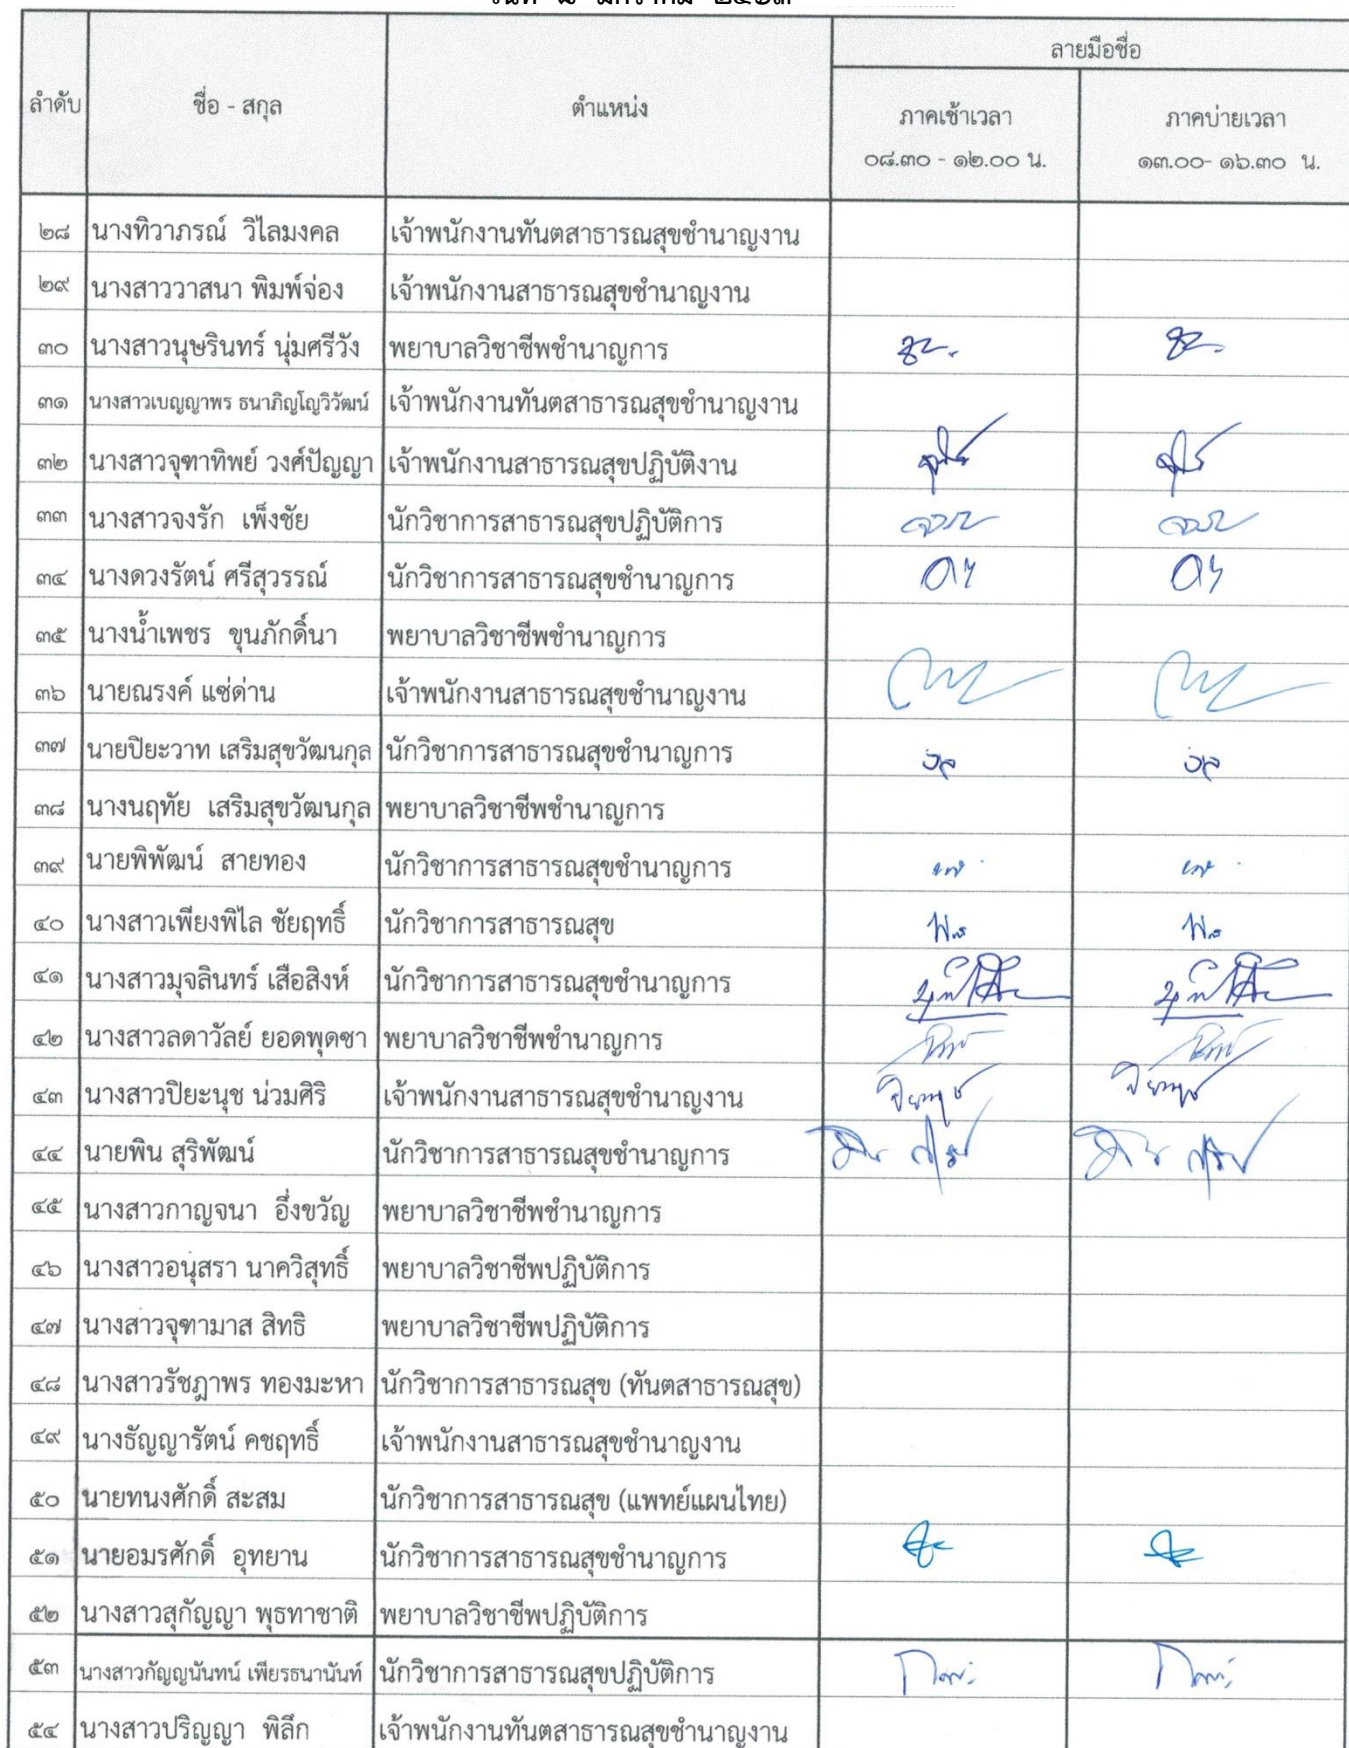 ลำดับ ชื่อ - สกุล ตำแหน่ง ลายมือชื่อ
ภาคเช้าเวลา ภาคบ่ายเวลา
๐๘.๓๐ - ๑๒.๐๐ น. ๑๓.๐๐- ๑๖.๓๐ น.
๒๘ นางทิวาภรณ์ วิไลมงคล เจ้าพนักงานทันตสาธารณสุขชำนาญงาน
๒๙ นางสาววาสนา พิมพ์จ่อง เจ้าพนักงานสาธารณสุขชำนาญงาน
๓๐ นางสาวนุษรินทร์ นุ่มศรีวัง พยาบาลวิชาชีพชำนาญการ
๓๑ นางสาวเบญญาพร ธนาภิญโญวิวัฒน์ เจ้าพนักงานทันตสาธารณสุขชำนาญงาน
๓๒ นางสาวจุฑาทิพย์ วงศ์ปัญญา เจ้าพนักงานสาธารณสุขปฏิบัติงาน
๓๓ นางสาวจงรัก เพ็งชัย นักวิชาการสาธารณสุขปฏิบัติการ
๓๔ นางดวงรัตน์ ศรีสุวรรณ์ นักวิชาการสาธารณสุขชำนาญการ
๓๕ นางน้ำเพชร ขุนภักดิ์นา พยาบาลวิชาชีพชำนาญการ
๓๖ นายณรงค์ แซ่ด่าน เจ้าพนักงานสาธารณสุขชำนาญงาน
๓๗ นายปิยะวาท เสริมสุขวัฒนกุล นักวิชาการสาธารณสุขชำนาญการ
๓๘ นางนฤทัย เสริมสุขวัฒนกุล พยาบาลวิชาชีพชำนาญการ
๓๙ นายพิพัฒน์ สายทอง นักวิชาการสาธารณสุขชำนาญการ
๔๐ นางสาวเพียงพิไล ชัยฤทธิ์ นักวิชาการสาธารณสุข
๔๑ นางสาวมุจลินทร์ เสือสิงห์ นักวิชาการสาธารณสุขชำนาญการ
๔๒ นางสาวลดาวัลย์ ยอดพุดซา พยาบาลวิชาชีพชำนาญการ
๔๓ นางสาวปิยะนุช น่วมศิริ เจ้าพนักงานสาธารณสุขชำนาญงาน
๔๔ นายพิน สุริพัฒน์ นักวิชาการสาธารณสุขชำนาญการ
๔๕ นางสาวกาญจนา อึ่งขวัญ พยาบาลวิชาชีพชำนาญการ
๔๖ นางสาวอนุสรา นาควิสุทธิ์ พยาบาลวิชาชีพปฏิบัติการ
๔๗ นางสาวจุฑามาส สิทธิ พยาบาลวิชาชีพปฏิบัติการ
๔๘ นางสาวรัชฎาพร ทองมะหา นักวิชาการสาธารณสุข (ทันตสาธารณสุข)
๔๙ นางธัญญารัตน์ คชฤทธิ์ เจ้าพนักงานสาธารณสุขชำนาญงาน
๕๐ นายทนงศักดิ์ สะสม นักวิชาการสาธารณสุข (แพทย์แผนไทย)
๕๑ นายอมรศักดิ์ อุทยาน นักวิชาการสาธารณสุขชำนาญการ
๕๒ นางสาวสุกัญญา พุธทาชาติ พยาบาลวิชาชีพปฏิบัติการ
๕๓ นางสาวกัญญนันทน์ เพียรธนานันท์ นักวิชาการสาธารณสุขปฏิบัติการ
๕๔ นางสาวปริญญา พิลึก เจ้าพนักงานทันตสาธารณสุขชำนาญงาน